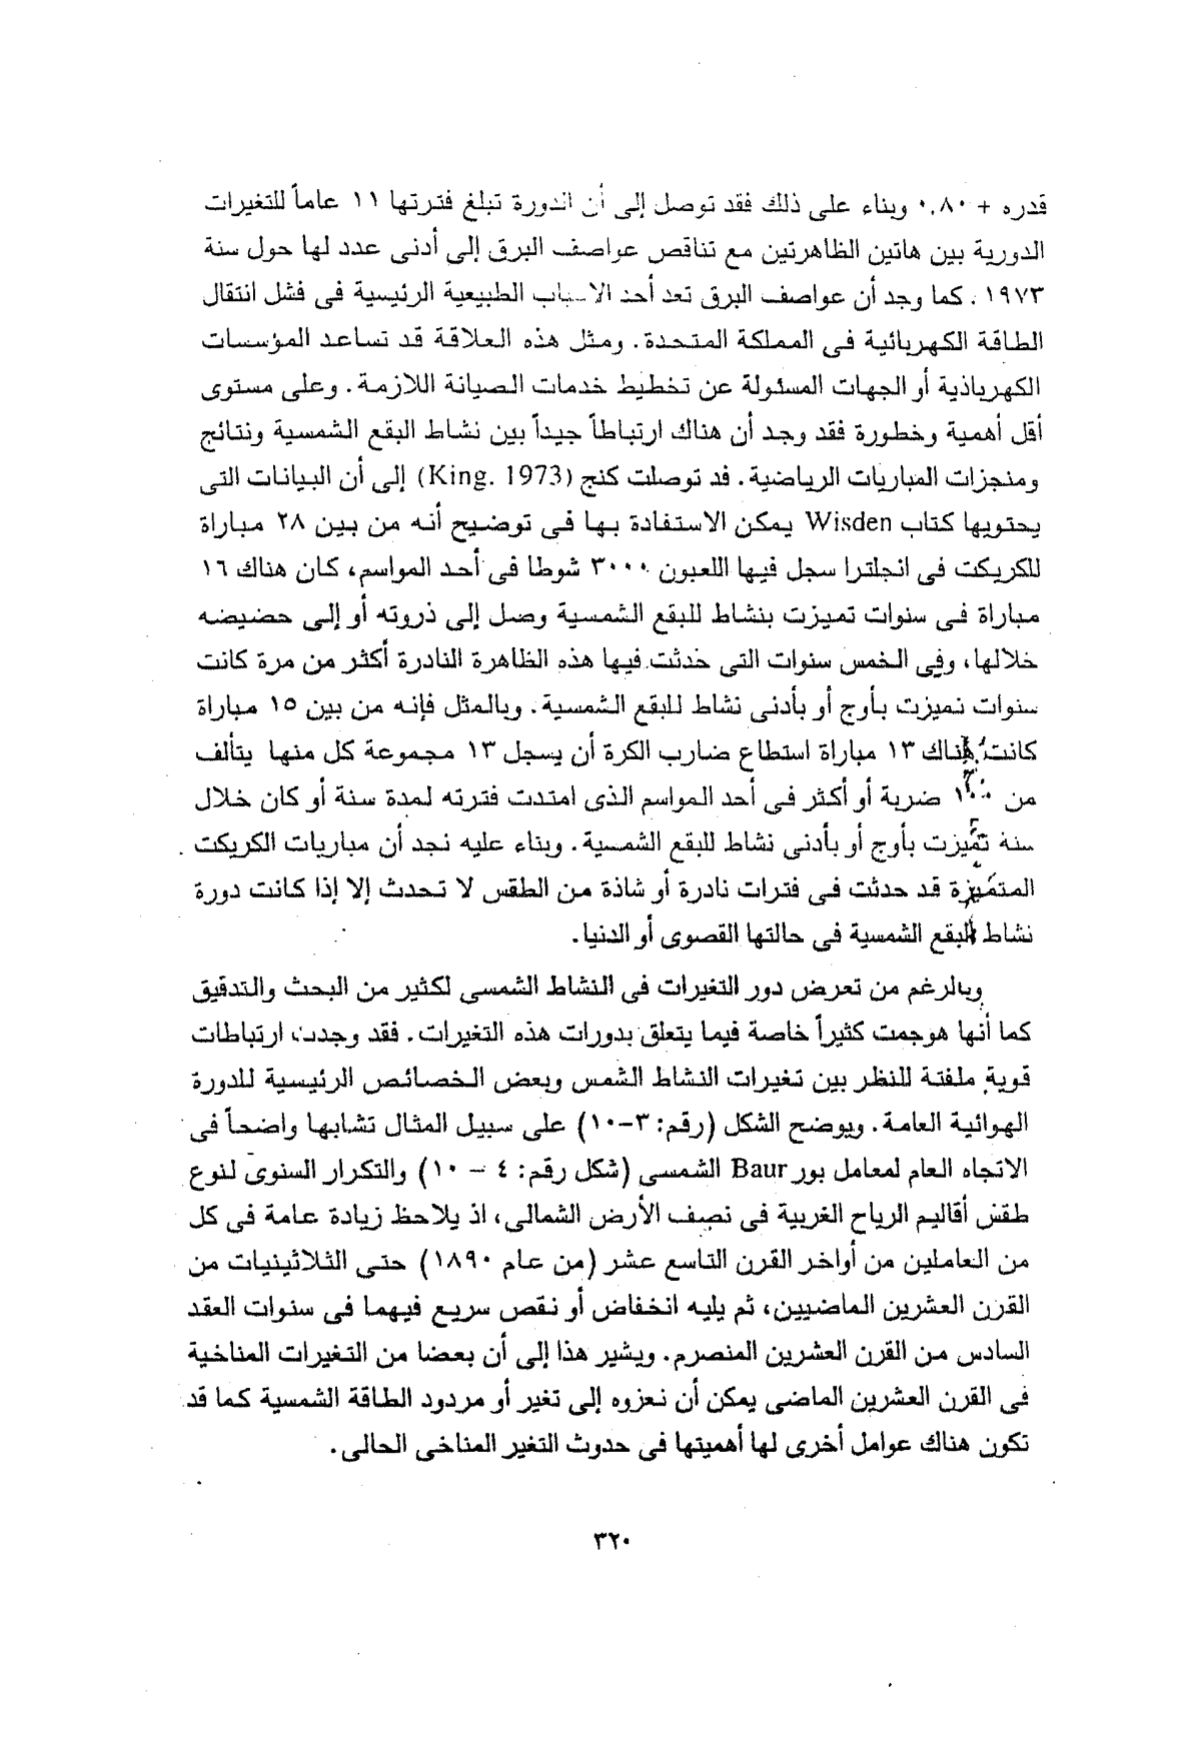 قدره + ٠,٨٠ وبناء على ذلك فقد توصل إلى أن الدورة تبلغ فترتها ١١ عاماً للتغيرات
الدورية بين هاتين الظاهرتين مع تناقص عواصف البرق إلى أدنى عدد لها حول سنة
١٩٧٣. كما وجد أن عواصف البرق تعد أحد الاسباب الطبيعية الرئيسية فى فشل انتقال
الطاقة الكهربائية فى المملكة المتحدة. ومثل هذه العلاقة قد تساعد المؤسسات
الكهربائية أو الجهات المسئولة عن تخطيط خدمات الصيانة اللازمة. وعلى مستوى
أقل أهمية وخطورة فقد وجد أن هناك ارتباطاً جيداً بين نشاط البقع الشمسية ونتائج
ومنجزات المباريات الرياضية. فد توصلت كنج (King. 1973) إلى أن البيانات التى
يحتويها كتاب Wisden يمكن الاستفادة بها فى توضيح أنه من بين ٢٨ مباراة
للكريكت فى انجلترا سجل فيها اللعبون ٣٠٠٠ شوطا فى أحد المواسم، كان هناك ١٦
مباراة فى سنوات تميزت بنشاط للبقع الشمسية وصل إلى ذروته أو إلى حضيضه
خلالها، وفى الخمس سنوات التى حدثت فيها هذه الظاهرة النادرة أكثر من مرة كانت
سنوات تميزت بأوج أو بأدنى نشاط للبقع الشمسية. وبالمثل فإنه من بين ١٥ مباراة
كانت هناك ١٣ مباراة استطاع ضارب الكرة أن يسجل ١٣ مجموعة كل منها يتألف
من ضربة أو أكثر فى أحد المواسم الذى امتدت فترته لمدة سنة أو كان خلال
سنة تميزت بأوج أو بأدنى نشاط للبقع الشمسية. وبناء عليه نجد أن مباريات الكريكت
المتميزة قد حدثت فى فترات نادرة أو شاذة من الطقس لا تحدث إلا إذا كانت دورة
نشاط البقع الشمسية فى حالتها القصوى أو الدنيا.
وبالرغم من تعرض دور التغيرات فى النشاط الشمسى لكثير من البحث والتدقيق
كما أنها هوجمت كثيراً خاصة فيما يتعلق بدورات هذه التغيرات. فقد وجدت ارتباطات
قوية ملفتة للنظر بين تغيرات النشاط الشمس وبعض الخصائص الرئيسية للدورة
الهوائية العامة. ويوضح الشكل (رقم: ٣-١٠) على سبيل المثال تشابها واضحاً فى
الاتجاه العام لمعامل بور Baur الشمسى (شكل رقم: ٤ - ١٠) والتكرار السنوى لنوع
طقس أقاليم الرياح الغربية فى نصف الأرض الشمالى، اذ يلاحظ زيادة عامة فى كل
من العاملين من أواخر القرن التاسع عشر (من عام ١٨٩٠) حتى الثلاثينيات من
القرن العشرين الماضيين، ثم يليه انخفاض أو نقص سريع فيهما فى سنوات العقد
السادس من القرن العشرين المنصرم. ويشير هذا إلى أن بعضا من التغيرات المناخية
فى القرن العشرين الماضى يمكن أن نعزوه إلى تغير أو مردود الطاقة الشمسية كما قد
تكون هناك عوامل أخرى لها أهميتها فى حدوث التغير المناخى الحالى.
٣٢٠